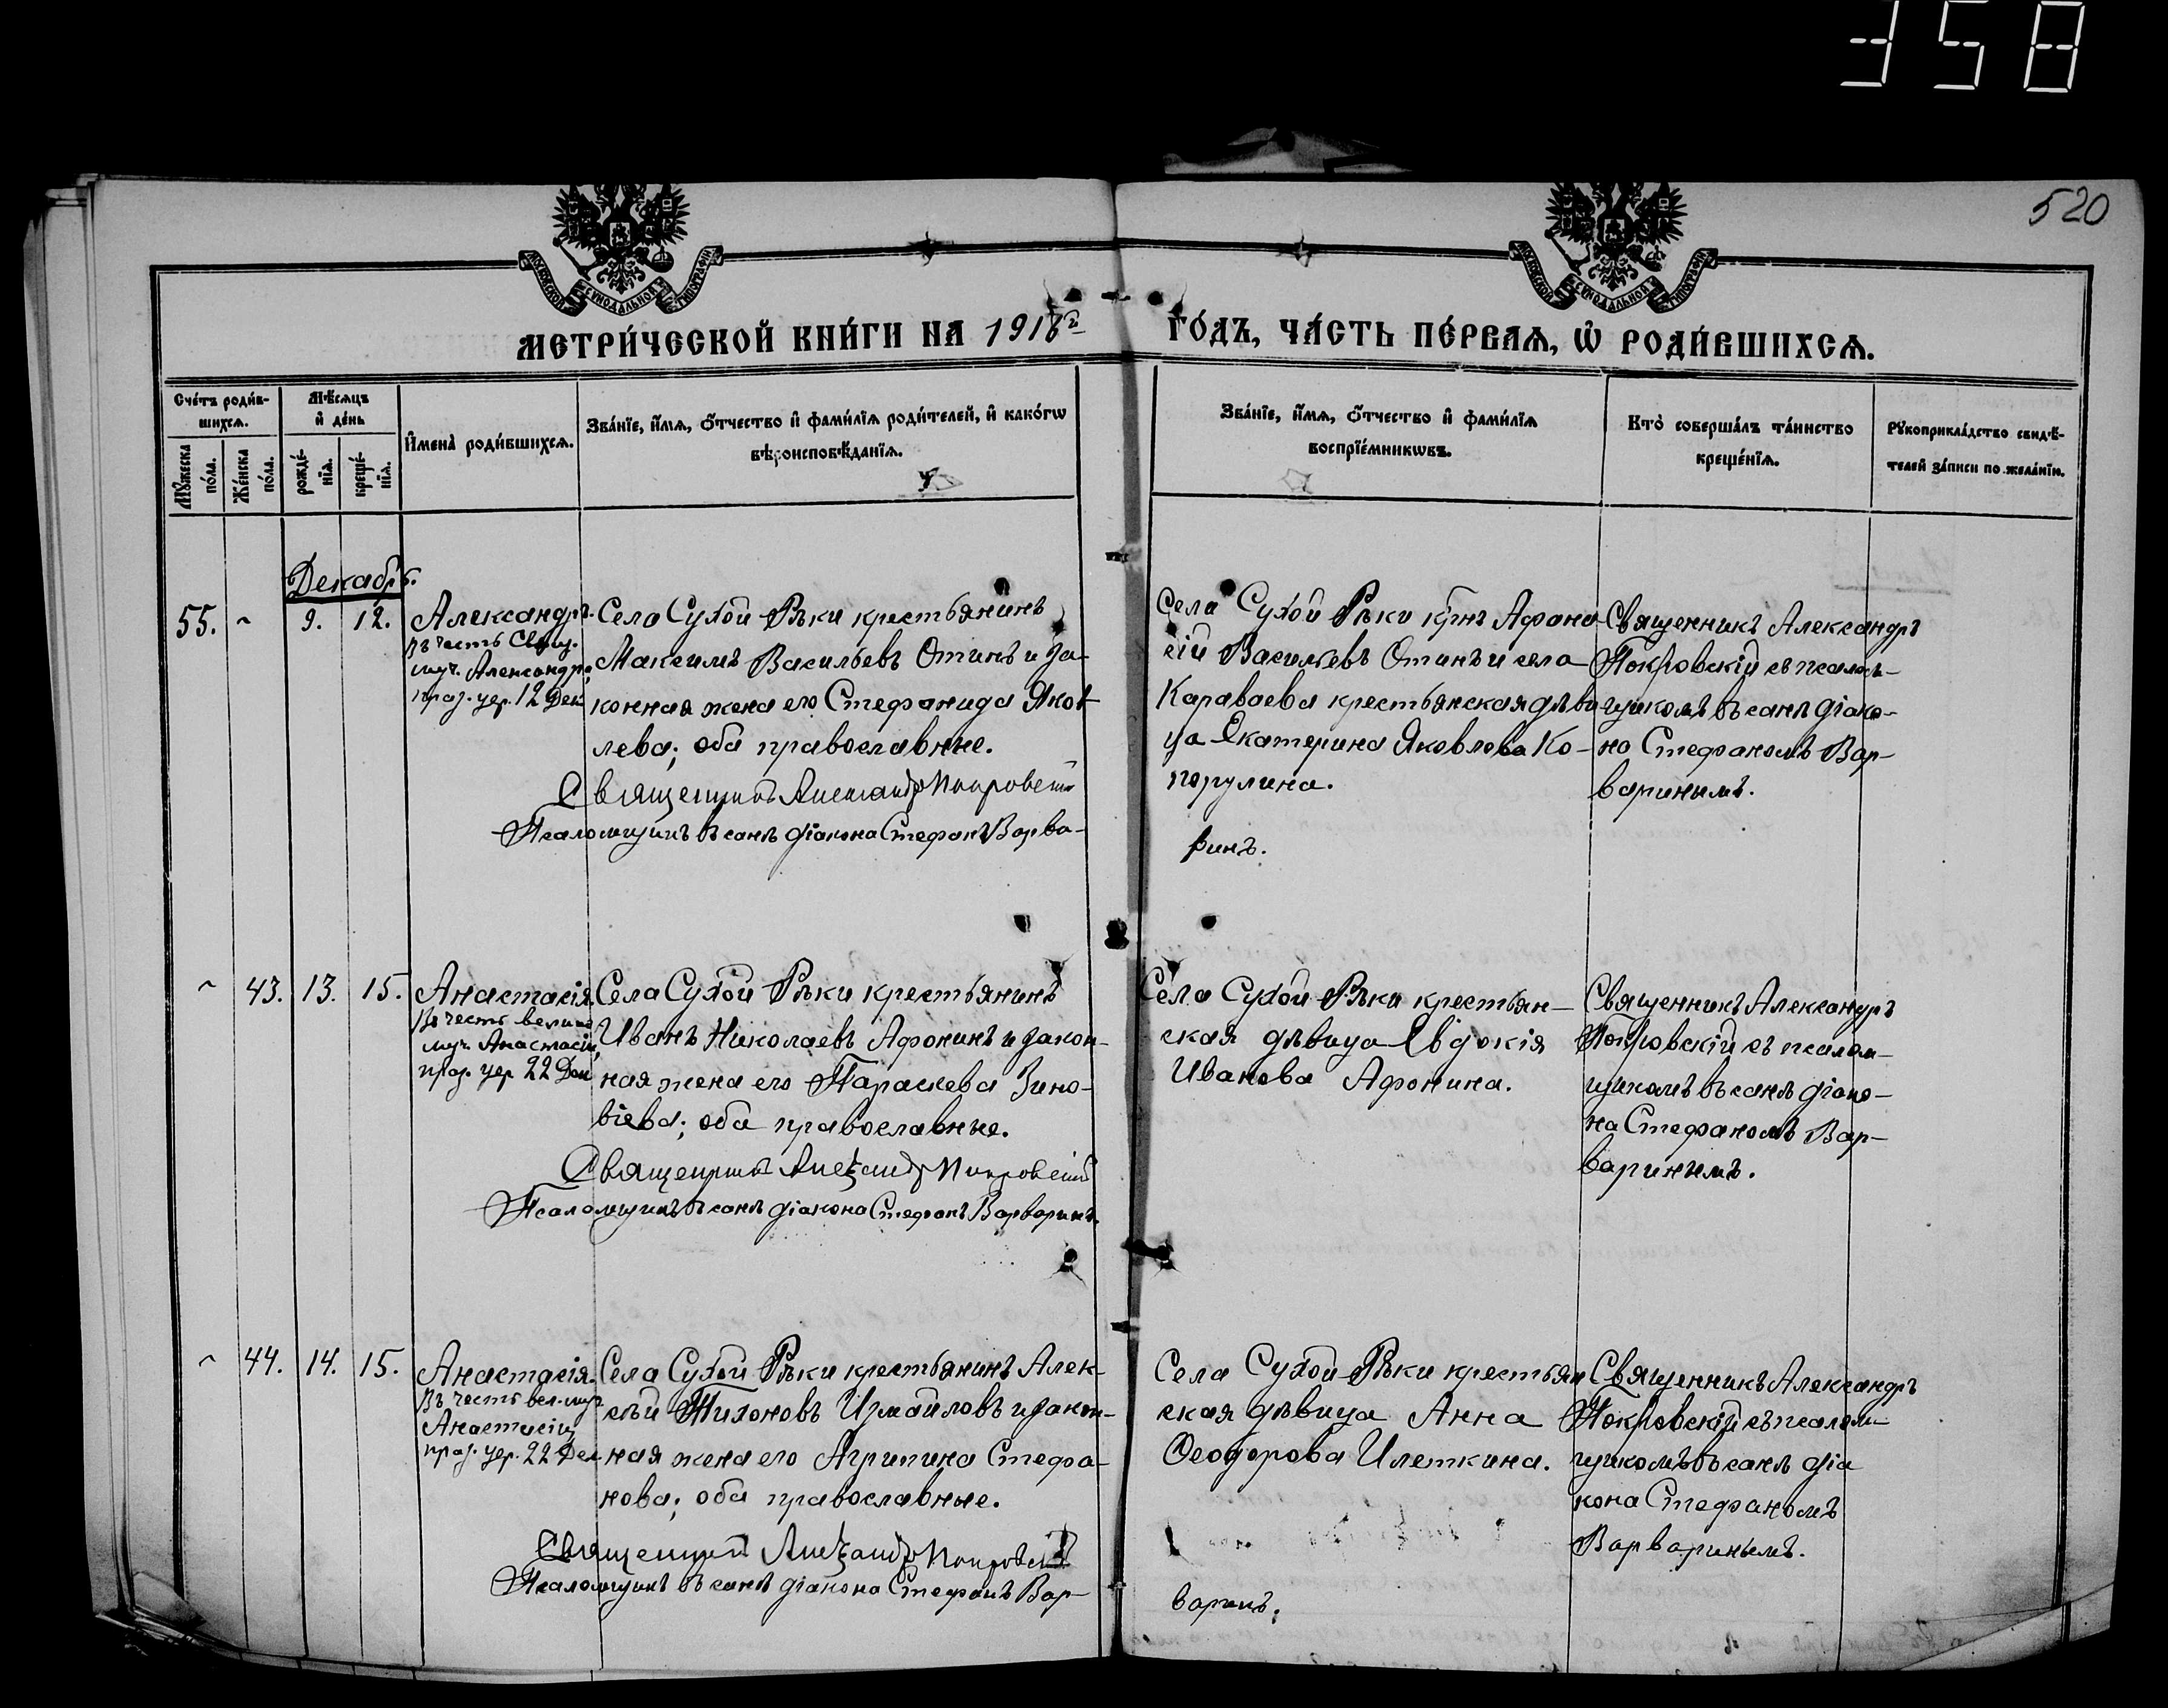 358
520
МОСКОВСКОЙ СѴНОДАЛЬНОЙ ТИПОГРАФІИ
МОСКОВСКОЙ СѴНОДАЛЬНОЙ ТИПОГРАФІИ
МЕТРИ́ЧЕСКОЙ КНИ́ГИ НА 1916й ГО́ДЪ, ЧА́СТЬ ПЕ́РВАѦ, Ѡ҆ РОДИ́ВШИХСѦ.
Сче́тъ роди́в-
шихсѧ.
Мꙋ́жеска
по́ла.
Же́нска
по́ла.
Мѣ́сѧцъ
и҆ де́нь
рожде́-
нїѧ.
креще́-
нїѧ.
И҆мена̀ роди́вшихсѧ.
Зва́нїе, и҆́мѧ, ѻ҆́тчество и҆ фами́лїѧ роди́телей, и҆ како́гѡ
вѣроисповѣ́данїѧ.
Зва́нїе, и҆́мѧ, ѻ҆́тчество и҆ фами́лїѧ
воспрїе́мникѡвъ.
Кто̀ соверша́лъ та́инство
креще́нїѧ.
Рꙋкоприкла́дство свидѣ́-
телей за́писи по жела́нїю.
Декабрь.
55. 9. 12.
Александръ.
Въ честь Свящ.
муч. Александра,
праз. цер. 12 Дек
Села Сухой Рѣки крестьянинъ
Максимъ Васильевъ Отинъ и за-
конная жена его Стефанида Яков-
лева; оба православные.
Священникъ Александръ Покровскій
Псаломщикъ въ санѣ діакона Стефанъ Варва-
ринъ.
Села Сухой Рѣки кр-нъ Афана
сій Васильевъ Отинъ и села
Караваева крестьянская дѣви
ца Екатерина Яковлева Ко-
порулина.
Священникъ Александръ
Покровскій съ псалом-
щикомъ въ санѣ діако-
на Стефаномъ Вар-
варинымъ.
43. 13. 15.
Анастасія.
Въ честь велико
муч. Анастасіи,
праз. цер. 22 Дек
Села Сухой Рѣки крестьянинъ
Иванъ Николаевъ Афонинъ и закон-
ная жена его Параскева Зино-
віева; оба православные.
Священникъ Александръ Покровскій
Псаломщикъ въ санѣ діакона Стефанъ Варваринъ.
Села Сухой Рѣки крестьян-
ская дѣвица Евдокія
Иванова Афонина.
Священникъ Александръ
Покровскій съ псалом-
щикомъ въ санѣ діако-
на Стефаномъ Вар-
варинымъ.
44. 14. 15.
Анастасія.
Въ честь вел. муч
Анастасіи
праз. цер. 22 Дек
Села Сухой Рѣки крестьянинъ Алек-
сѣй Тихоновъ Измайловъ и закон-
ная жена его Агрипина Стефа-
нова; оба православные.
Священникъ Александръ Покровскій
Псаломщикъ въ санѣ діакона Стефанъ Вар-
варинъ.
Села Сухой Рѣки крестьян
ская дѣвица Анна
Ѳеодорова Илеткина.
Священникъ Александръ
Покровскій съ псалом-
щикомъ въ санѣ діа
кона Стефаномъ
Варваринымъ.